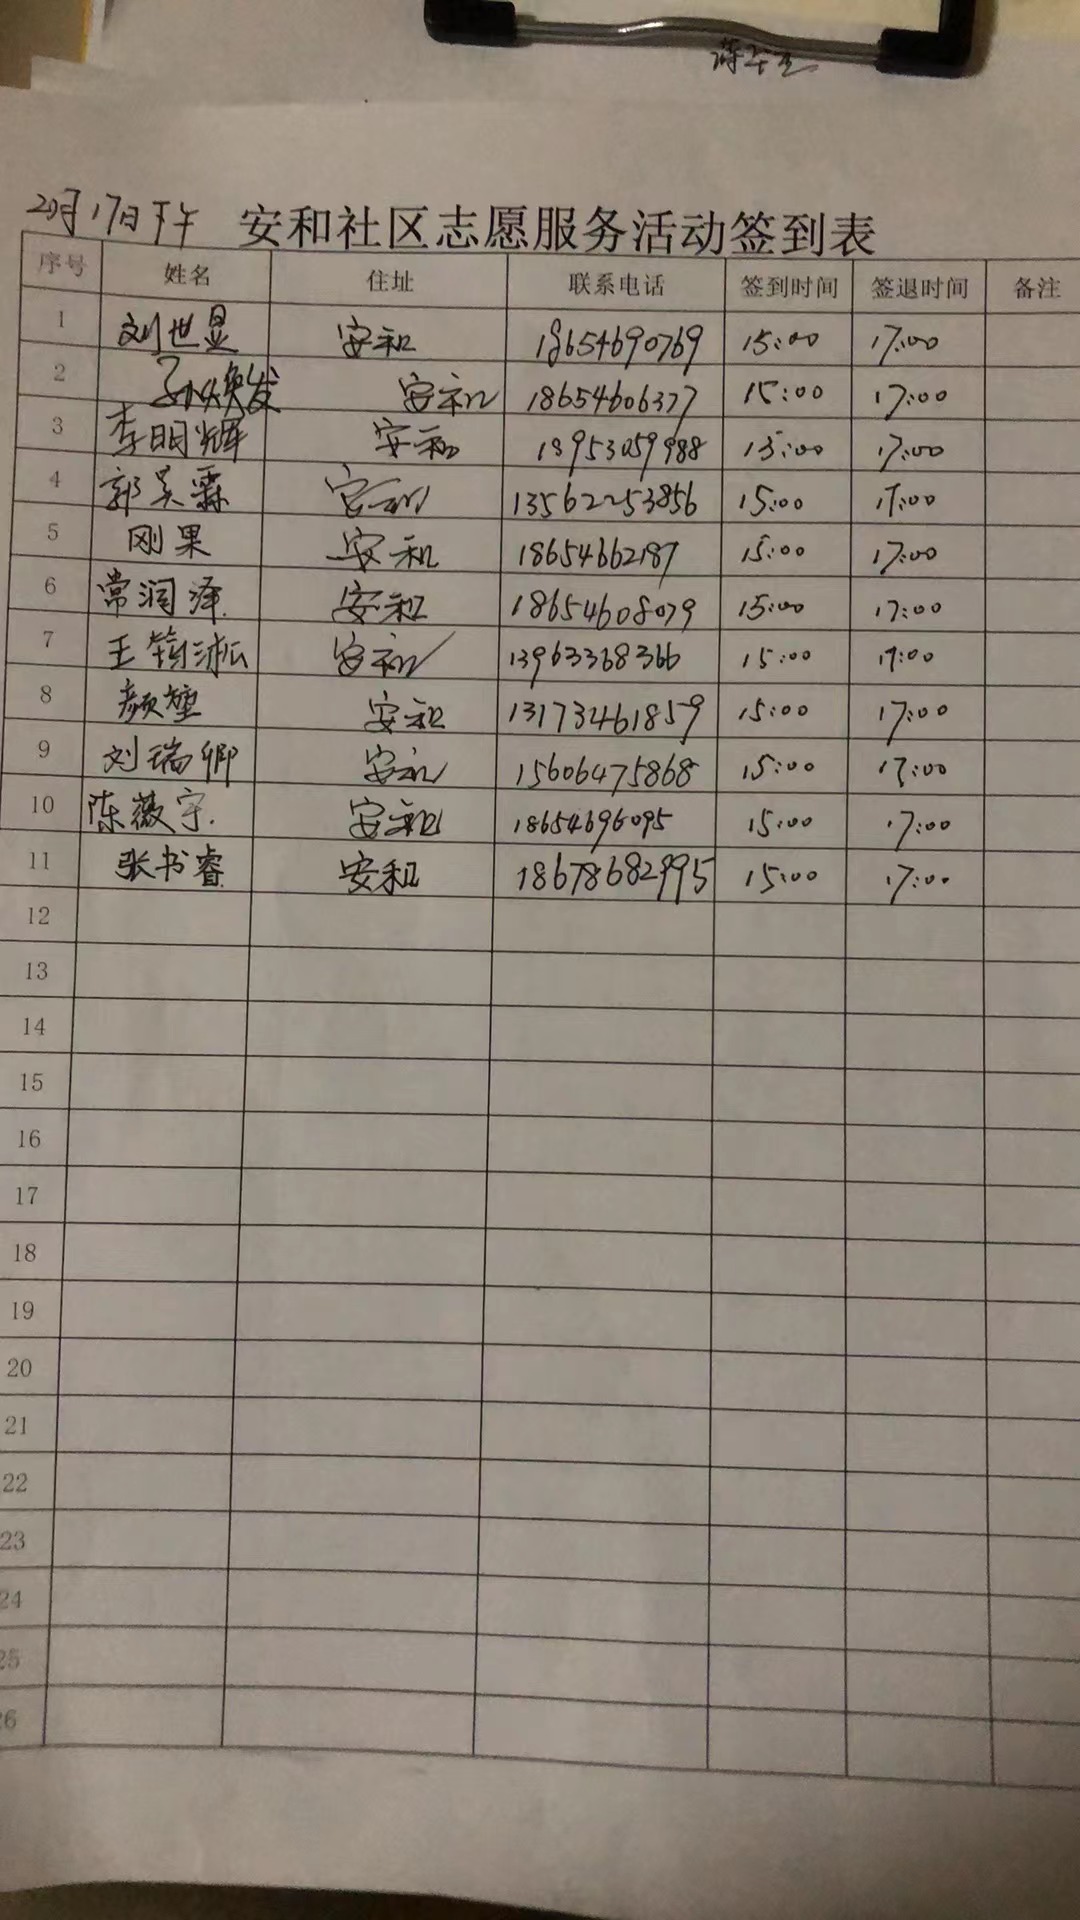 2月17日下午 安和社区志愿服务活动签到表
序号 姓名 住址 联系电话 签到时间 签退时间 备注
1 刘世显 安和 18654690769 15:00 17:00
2 孙焕发 安和 18654606377 15:00 17:00
3 李明辉 安和 13953059988 15:00 17:00
4 郭昊霖 安和 13562253856 15:00 17:00
5 刚果 安和 18654662187 15:00 17:00
6 常润泽 安和 18654608079 15:00 17:00
7 王筠淞 安和 13963368366 15:00 17:00
8 颜堃 安和 13173461859 15:00 17:00
9 刘瑞卿 安和 15606475868 15:00 17:00
10 陈薇宇 安和 18654696095 15:00 17:00
11 张书睿 安和 18678682995 15:00 17:00
12
13
14
15
16
17
18
19
20
21
22
23
24
25
26